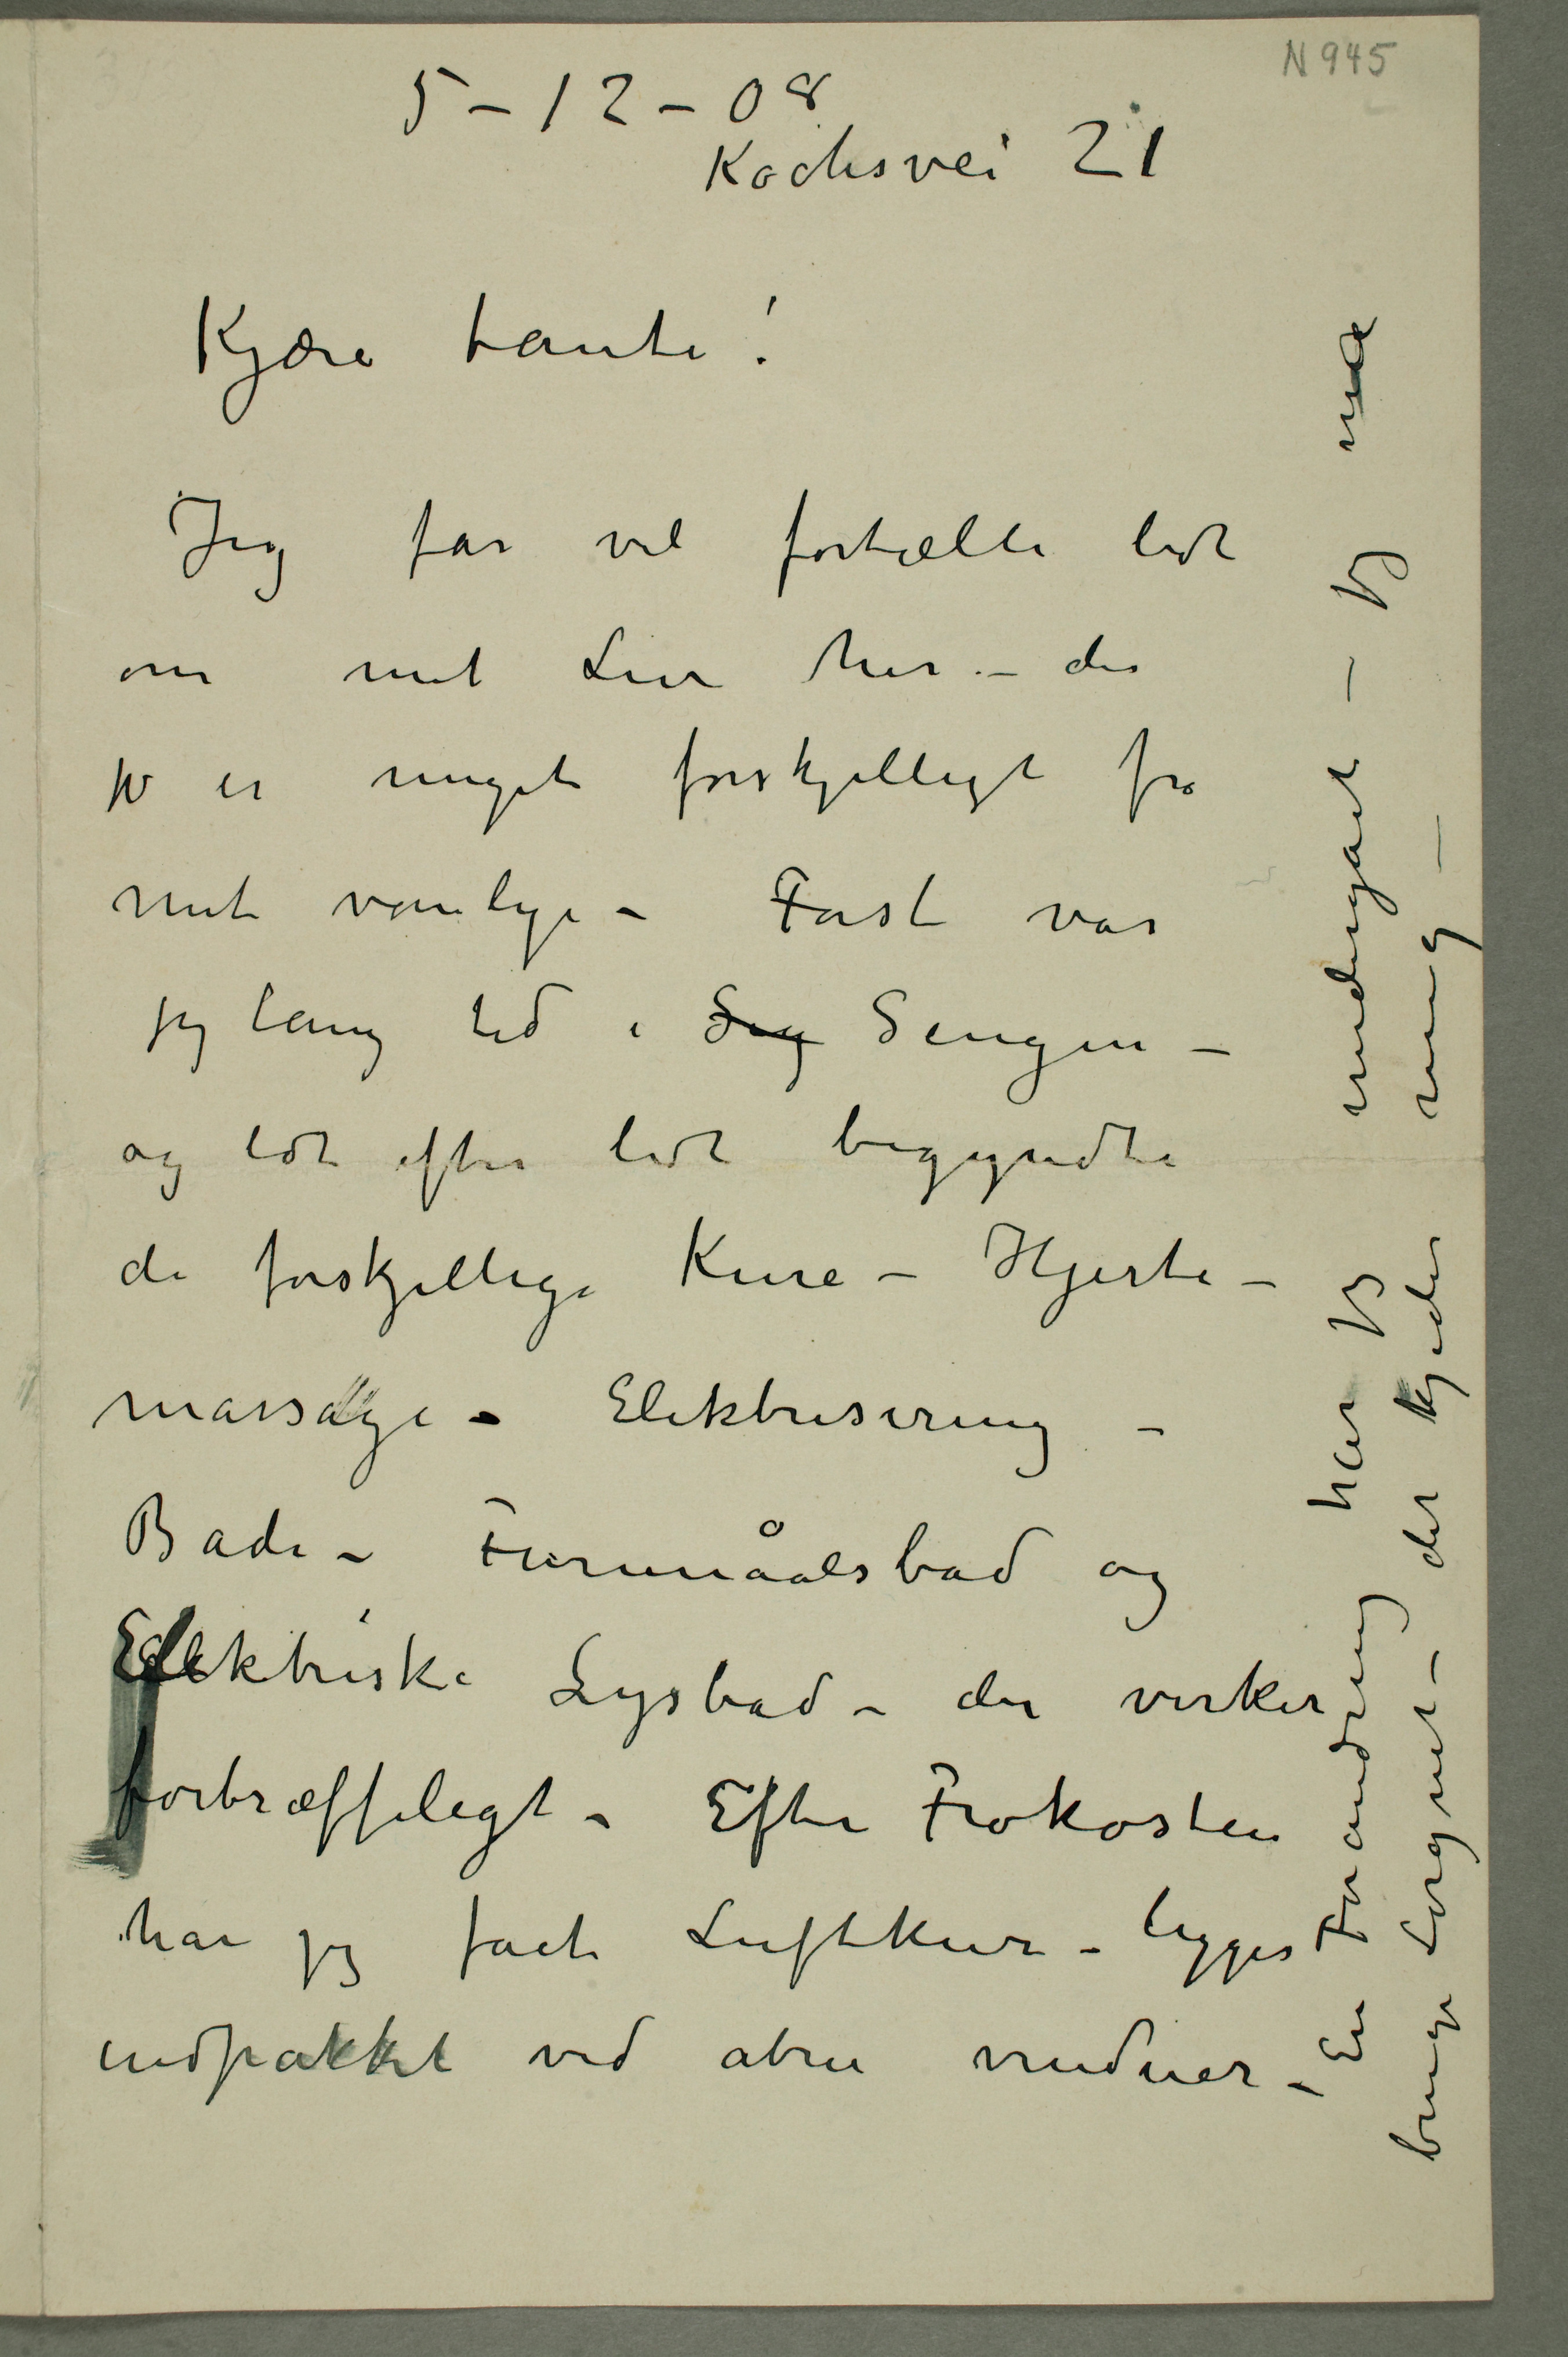 N 945
5-12-08
Kochsvei 21
Kjære tante!
Jeg får vel fortælle lidt
om mit Liv her – der
jo er meget forskjelligt fra
mit vanlige – Først var
jeg lang tid i Seg Sengen –
og lidt efter lidt begyndte
de forskjellige Kure – Hjerte –
massage – Elektrisering –
Bade – Furunåalsbad og
Elektriske Lysbad – der virker
fortræffeligt – Efter Frokosten
har jeg faat Luftkur – ligges
indpakket ved abne vinduer –
En Forandring har jeg undergaat – Jeg må
bruge Lorgnet – det kjeder mig –